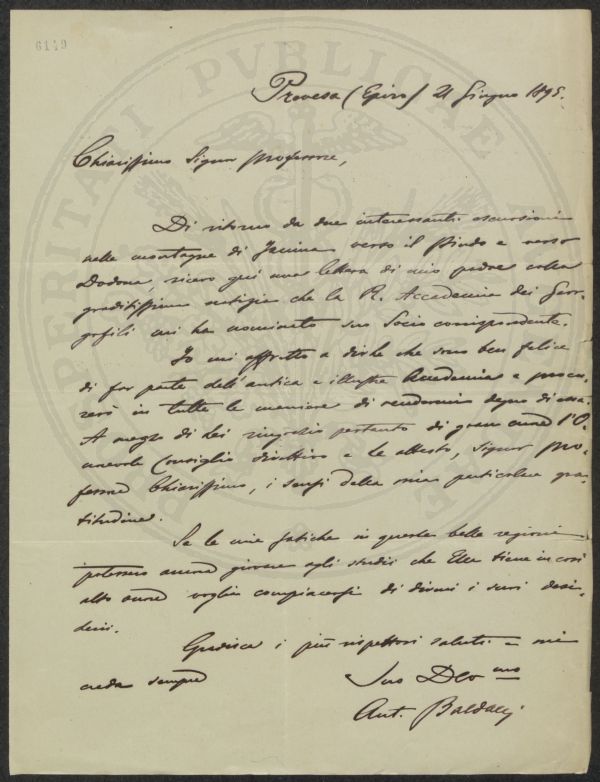 6149
Prevesa (Epiro) 21 Giugno 1895.
Chiarissimo Signor professore,
Di ritorno da due interessanti escursioni
nelle montagne di Janina verso il Pindo e verso
Dodona, ricevo qui una lettera di mio padre colla
graditissima notizia che la R. Accademia dei Geor-
gofili mi ha nominato suo Socio corrispondente.
Io mi affretto a dirle che sono ben felice
di far parte dell'antica e illustre Accademia e procu-
rerò in tutte le maniere di rendermi degno di essa.
A mezzo di Lei ringrazio pertanto di gran cuore l'O-
norevole Consiglio direttivo e Le attesto, Signor pro-
fessore Chiarissimo, i sensi della mia particolare gra-
titudine.
Se le mie fatiche in queste belle regioni
potessero ancora giovare agli studii che Ella tiene in così
alto onore voglia compiacersi di dirmi i suoi desi-
deri.
Gradisca i più rispettosi saluti e mi
creda sempre
Suo Dev mo
Ant. Baldacci
PROSPERITATI PUBLICAE AUGENDAE